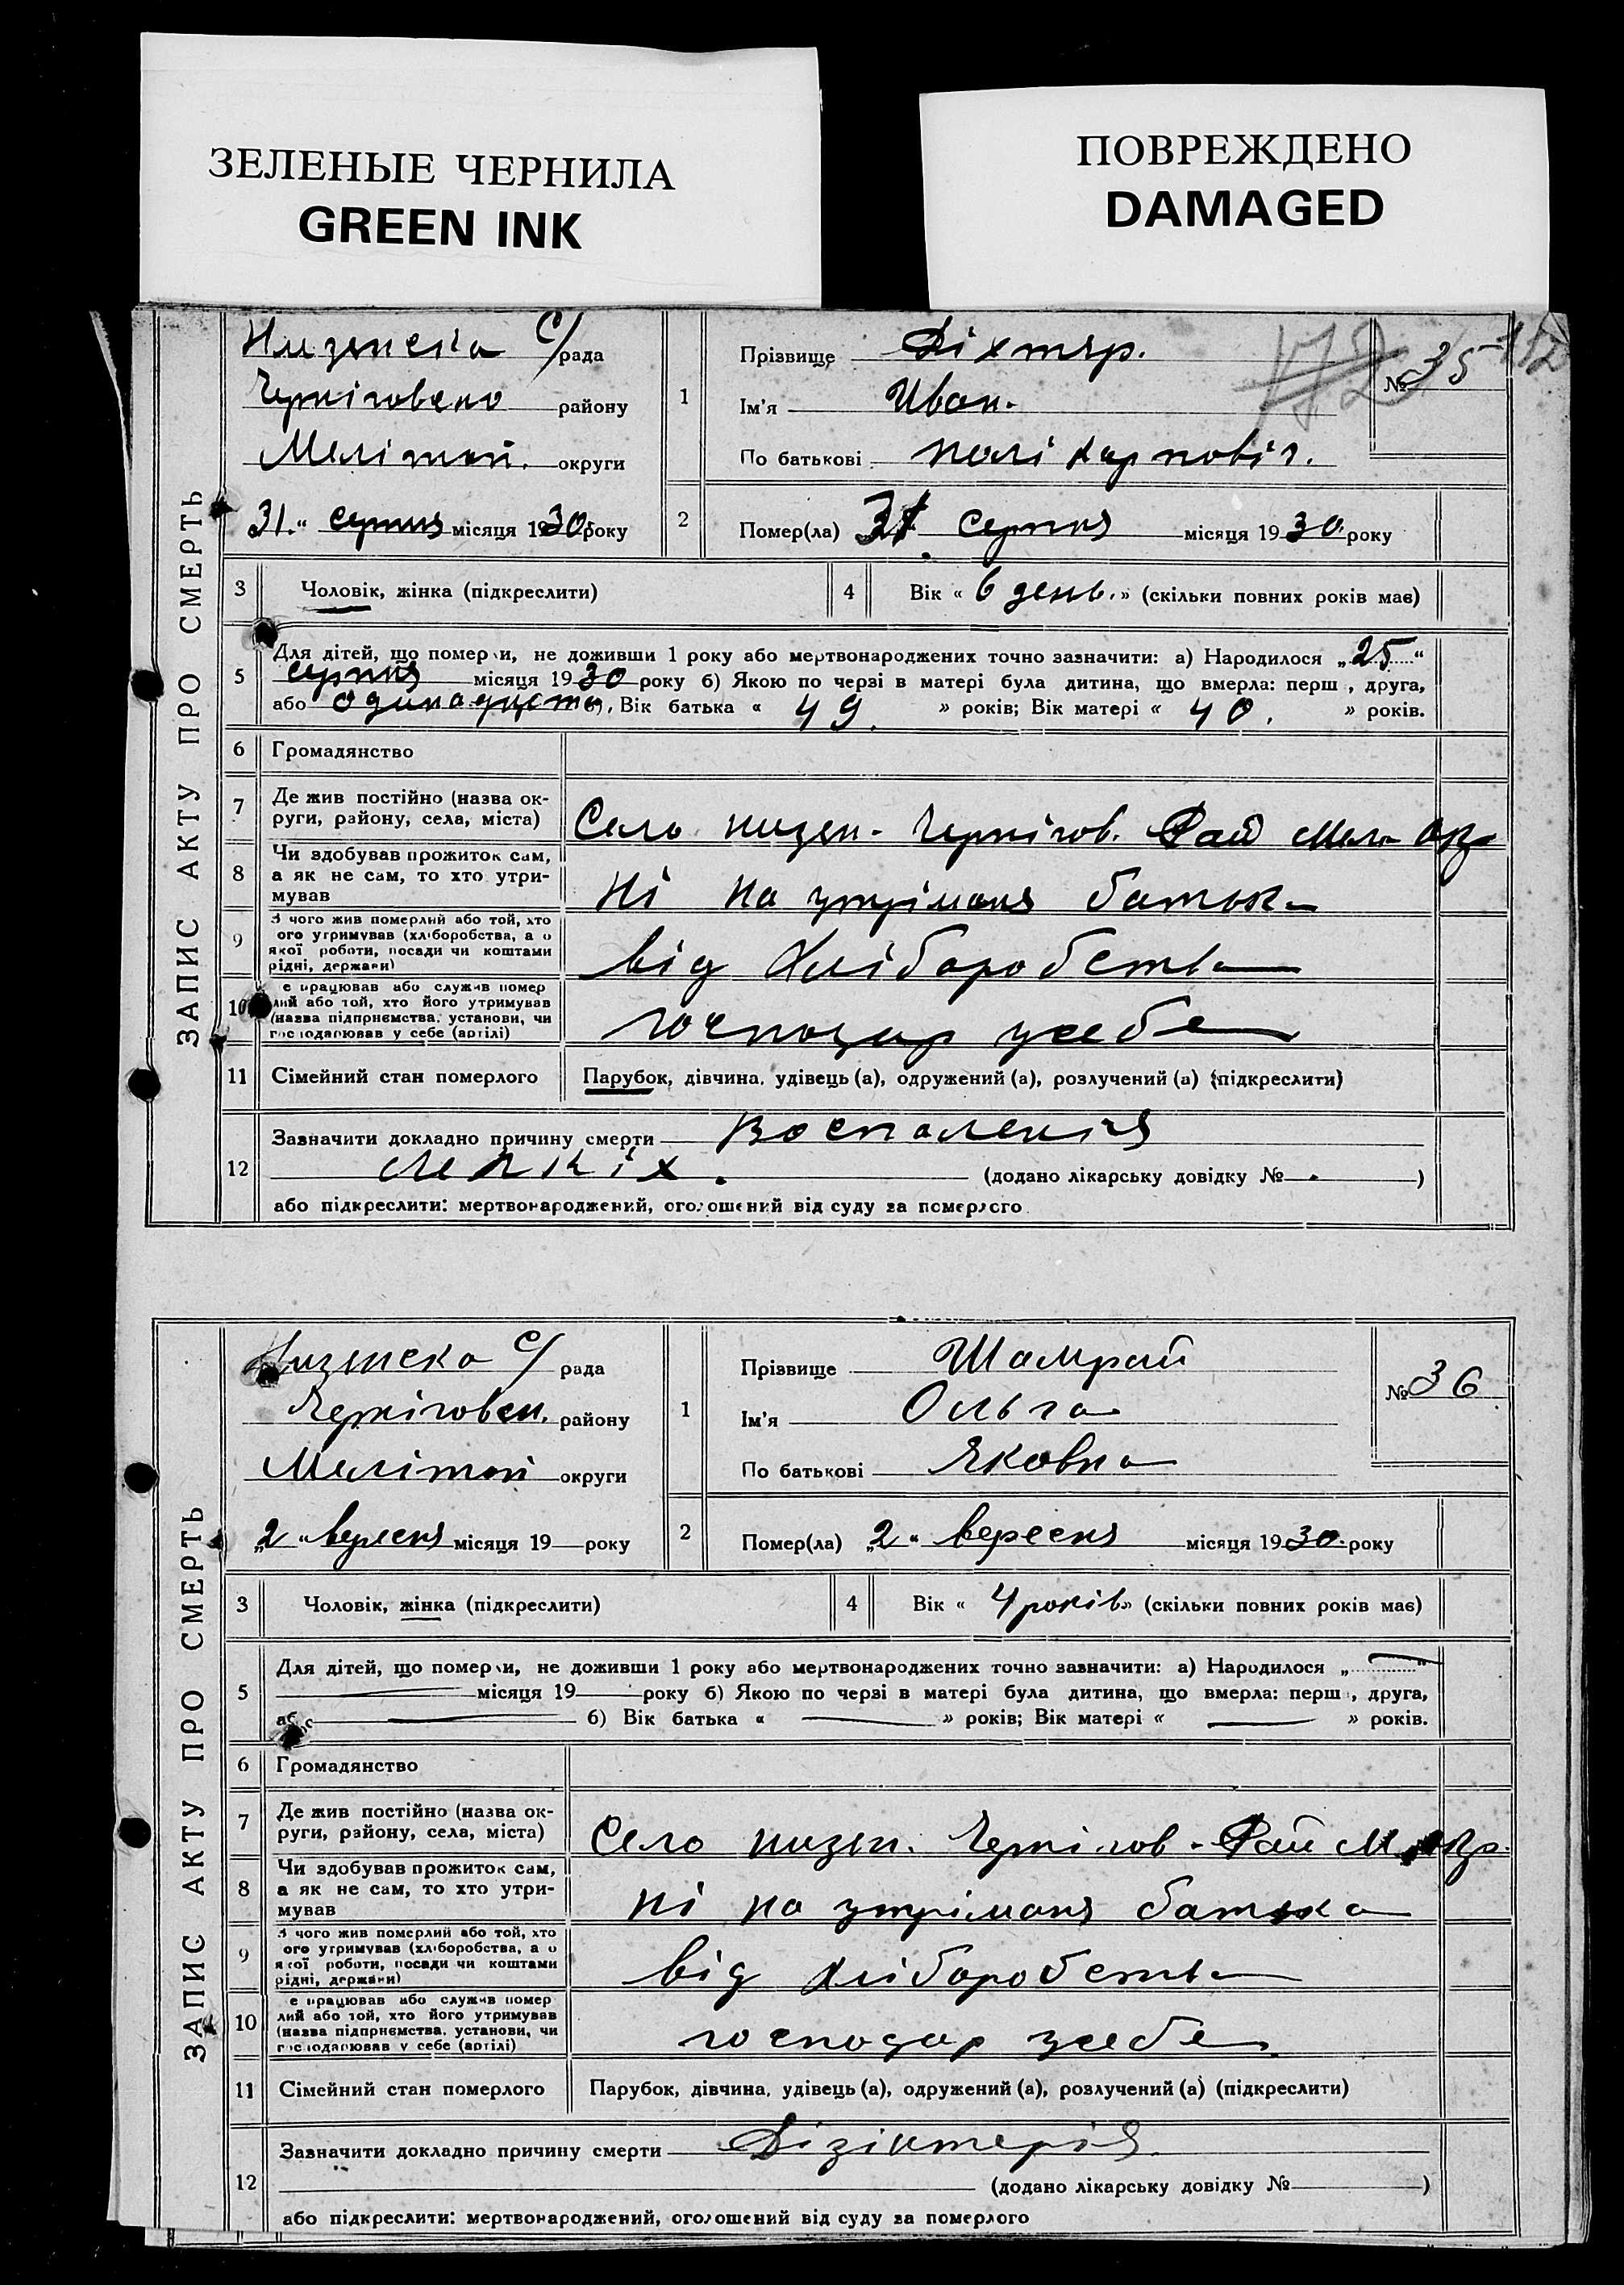 ЗЕЛЕНЫЕ ЧЕРНИЛА
GREEN INK
ПОВРЕЖДЕНО
DAMAGED
ЗАПИС АКТУ ПРО СМЕРТЬ
Низянска С/рада
району
Меліт округи
31 серпня місяця 1930 року
1 Прізвище Діхтяр.
Ім'я Иван.
По батькові Полікарповіч.
№ 35
2 Помер(ла) 31 Серпня місяця 1930 року
3 Чоловік, жінка (підкреслити)
4 Вік « 6 день. » (скільки повних років має)
5 Для дітей, що померли, не доживши 1 року або мертвонароджених точно зазначити: а) Народилося „25“
серпня місяця 1930 року б) Якою по черзі в матері була дитина, що вмерла: перш , друга,
або Вік батька « 49. » років; Вік матері « 40. » років.
6 Громадянство
7 Де жив постійно (назва округи, району, села, міста)
Село низян. Чернігов. Рай Мел. окр
8 Чи здобував прожиток сам,
а як не сам, то хто утри-
мував
ні на утріманя батька
9 чого жив померлий або той, хто
ого утримував (хліборобства, а о
якої роботи, посади чи коштами
рідні, держави)
від Хліборобства
10 е працював або служив помер
лий або той, хто його утримував
(назва підприємства, установи, чи
господарював у себе (артілі)
господар усебе
11 Сімейний стан померлого Парубок, дівчина, удівець (а), одружений (а), розлучений (а) (підкреслити)
12 Зазначити докладно причину смерти Воспаленія
легкіх. (додано лікарську довідку № )
або підкреслити: мертвонароджений, оголошений від суду за померлого
ЗАПИС АКТУ ПРО СМЕРТЬ
Низянска С/рада
Черніговск. району
Меліт округи
„2“ вересня місяця 19 року
1 Прізвище Шамрай
Ім'я Ольга
По батькові Яковна
№ 36
2 Помер(ла) „2“ вересня місяця 1930 року
3 Чоловік, жінка (підкреслити)
4 Вік « 4 років » (скільки повних років має)
5 Для дітей, що померли, не доживши 1 року або мертвонароджених точно зазначити: а) Народилося „ “
місяця 19 року б) Якою по черзі в матері була дитина, що вмерла: перш , друга,
або б) Вік батька « » років; Вік матері « » років.
6 Громадянство
7 Де жив постійно (назва ок-
руги, району, села, міста)
Село низян. Чернігов. Рай М. окр.
8 Чи здобував прожиток сам,
а як не сам, то хто утри-
мував
ні на утріманя батька
9 чого жив померлий або той, хто
ого утримував (хліборобства, а о
якої роботи, посади чи коштами
рідні, держави)
від хліборобства
10 е працював або служив помер
лий або той, хто його утримував
(назва підприємства, установи, чи
господарював у себе (артілі)
господар усебе
11 Сімейний стан померлого Парубок, дівчина, удівець (а), одружений (а), розлучений (а) (підкреслити)
12 Зазначити докладно причину смерти Дізінтерія
(додано лікарську довідку № )
або підкреслити: мертвонароджений, оголошений від суду за померлого